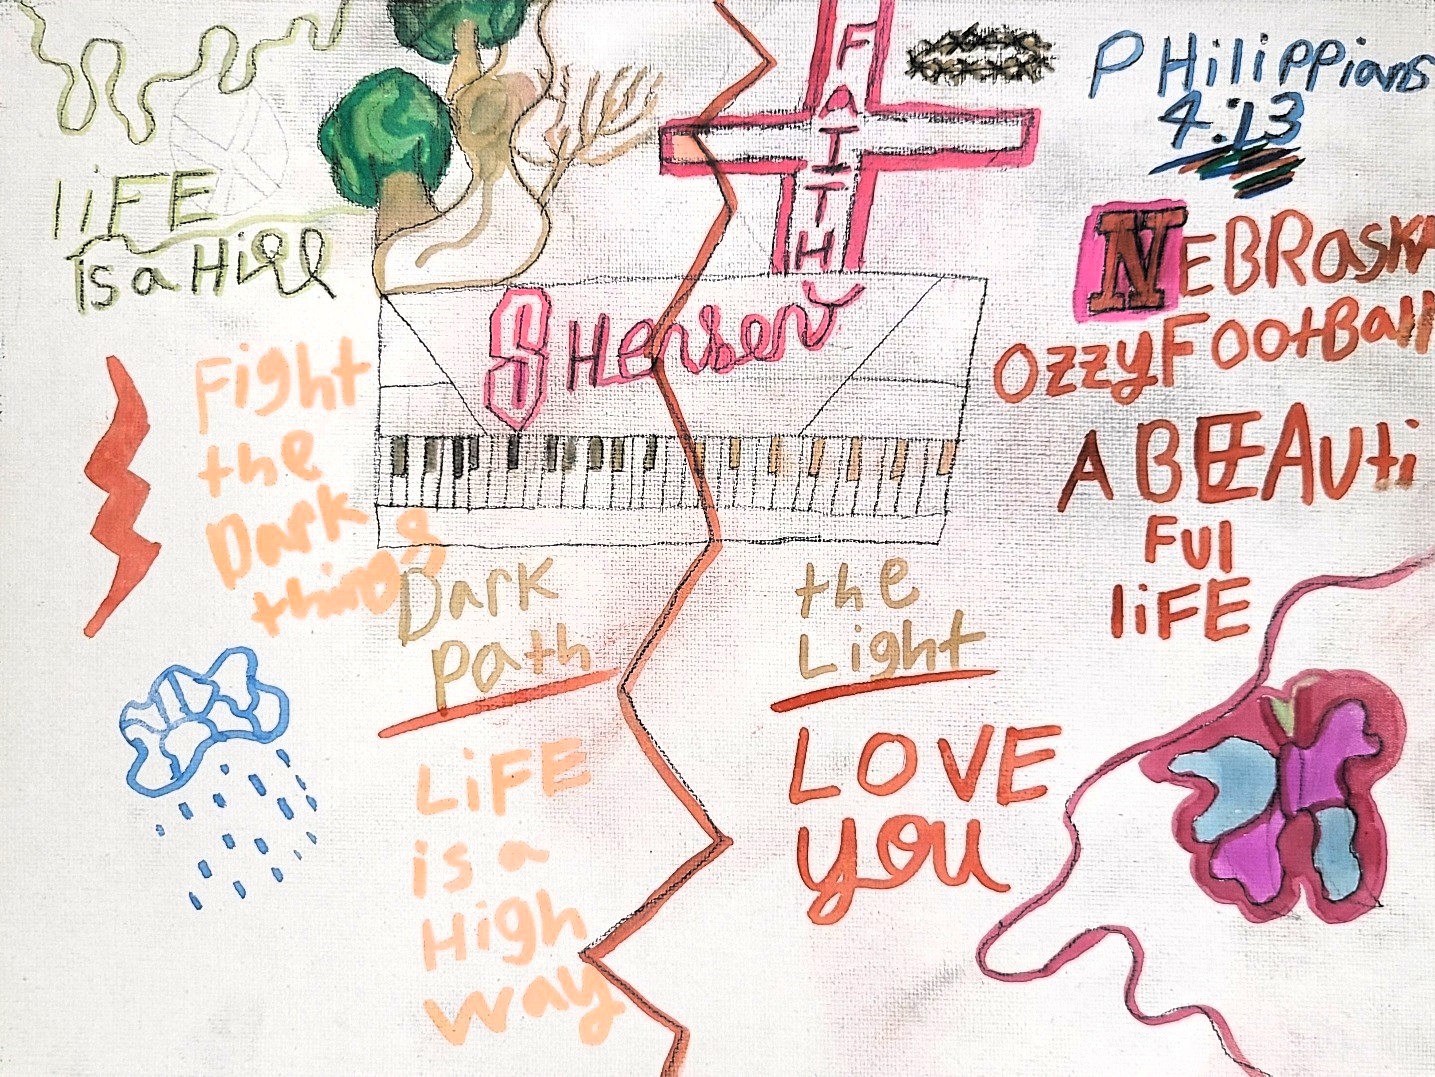 liFE
is a Hill
FAITH
PHilippians
4:13
NEBRasKA
OzzyFootBall
A BEAUti
FUl
liFE
SHensen
Fight
the
Dark
things
Dark
path
the
Light
LiFE
is a
High
way
LOVE
you